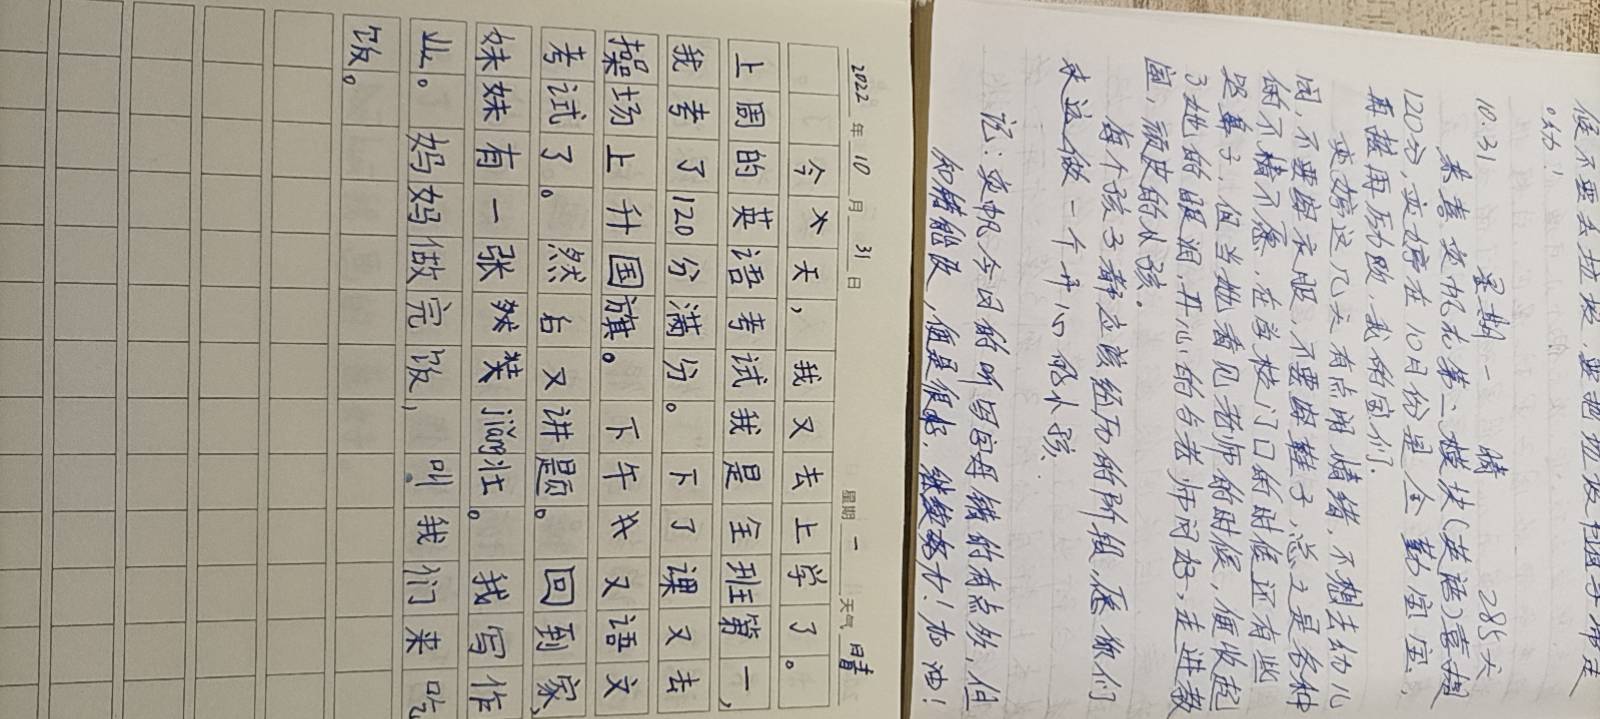 2022年10月31日 星期一 天气晴
今天，我又去上学了。
上周的英语考试我是全班第一，
我考了120分满分。下了课又去
操场上升国旗。下午又语文
考试了。然后又讲题。回到家，
妹妹有一张奖jiǎng壮。我写作
业。妈妈做完饭，叫我们来吃
饭。
候不要去垃圾，要把
10.31 星期一 晴 285天
恭喜奕帆在第二模块(英语)喜提
120分，奕婷在10月份是全勤宝宝，
再接再励哟，我的宝们。
奕婷这几天有点闹情绪，不想去幼儿
园，不要穿衣服，不要穿鞋子，总之是各种
的不情不愿，在学校门口的时候还有些
哭鼻子，但当她看见老师的时候，便收起
了她的眼泪，开心的与老师问好，走进教
室，顽皮的小孩。
每个孩子都应该经历的阶段，愿你们
永远做一个开心的小孩。
记：奕帆今日的听写字母错的有点多，但
知错能改，便是很好，继续努力！加油！